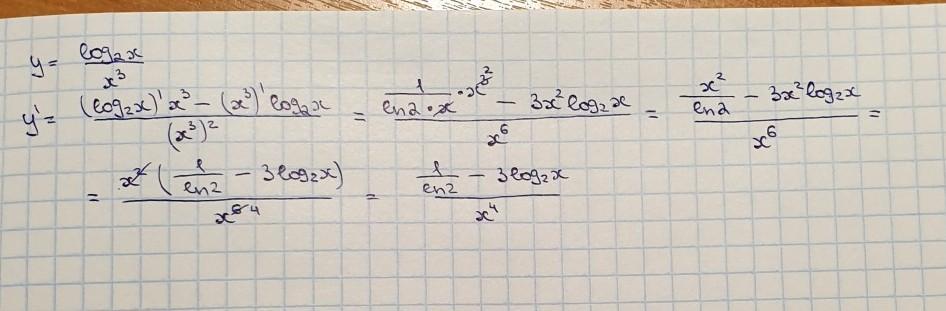 y = log₂x / x³
y' = ((log₂x)' x³ − (x³)' log₂x) / (x³)² = (1/(ln2·x) · x³ ² − 3x² log₂x) / x⁶ = (x²/ln2 − 3x² log₂x) / x⁶ =
= x² (1/ln2 − 3log₂x) / x⁶ ⁴ = (1/ln2 − 3log₂x) / x⁴